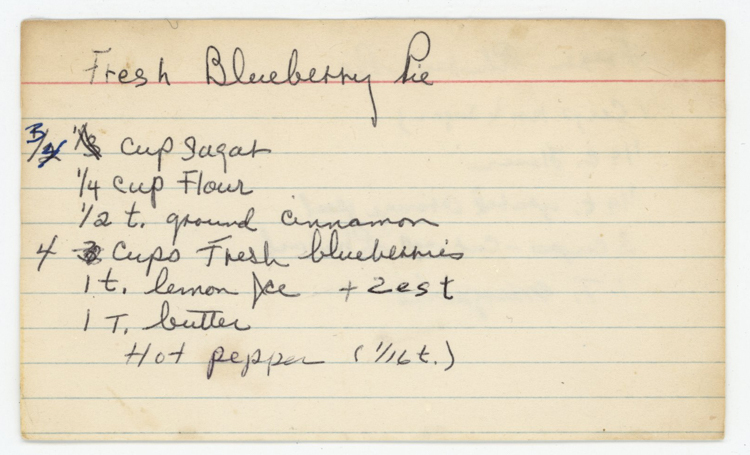 Fresh Blueberry Pie
3/4 cup sugar
1/4 cup Flour
1/2 t. ground cinnamon
4 cups Fresh blueberries
1 t. lemon jce + zest
1 T. butter
Hot pepper (1/16 t.)